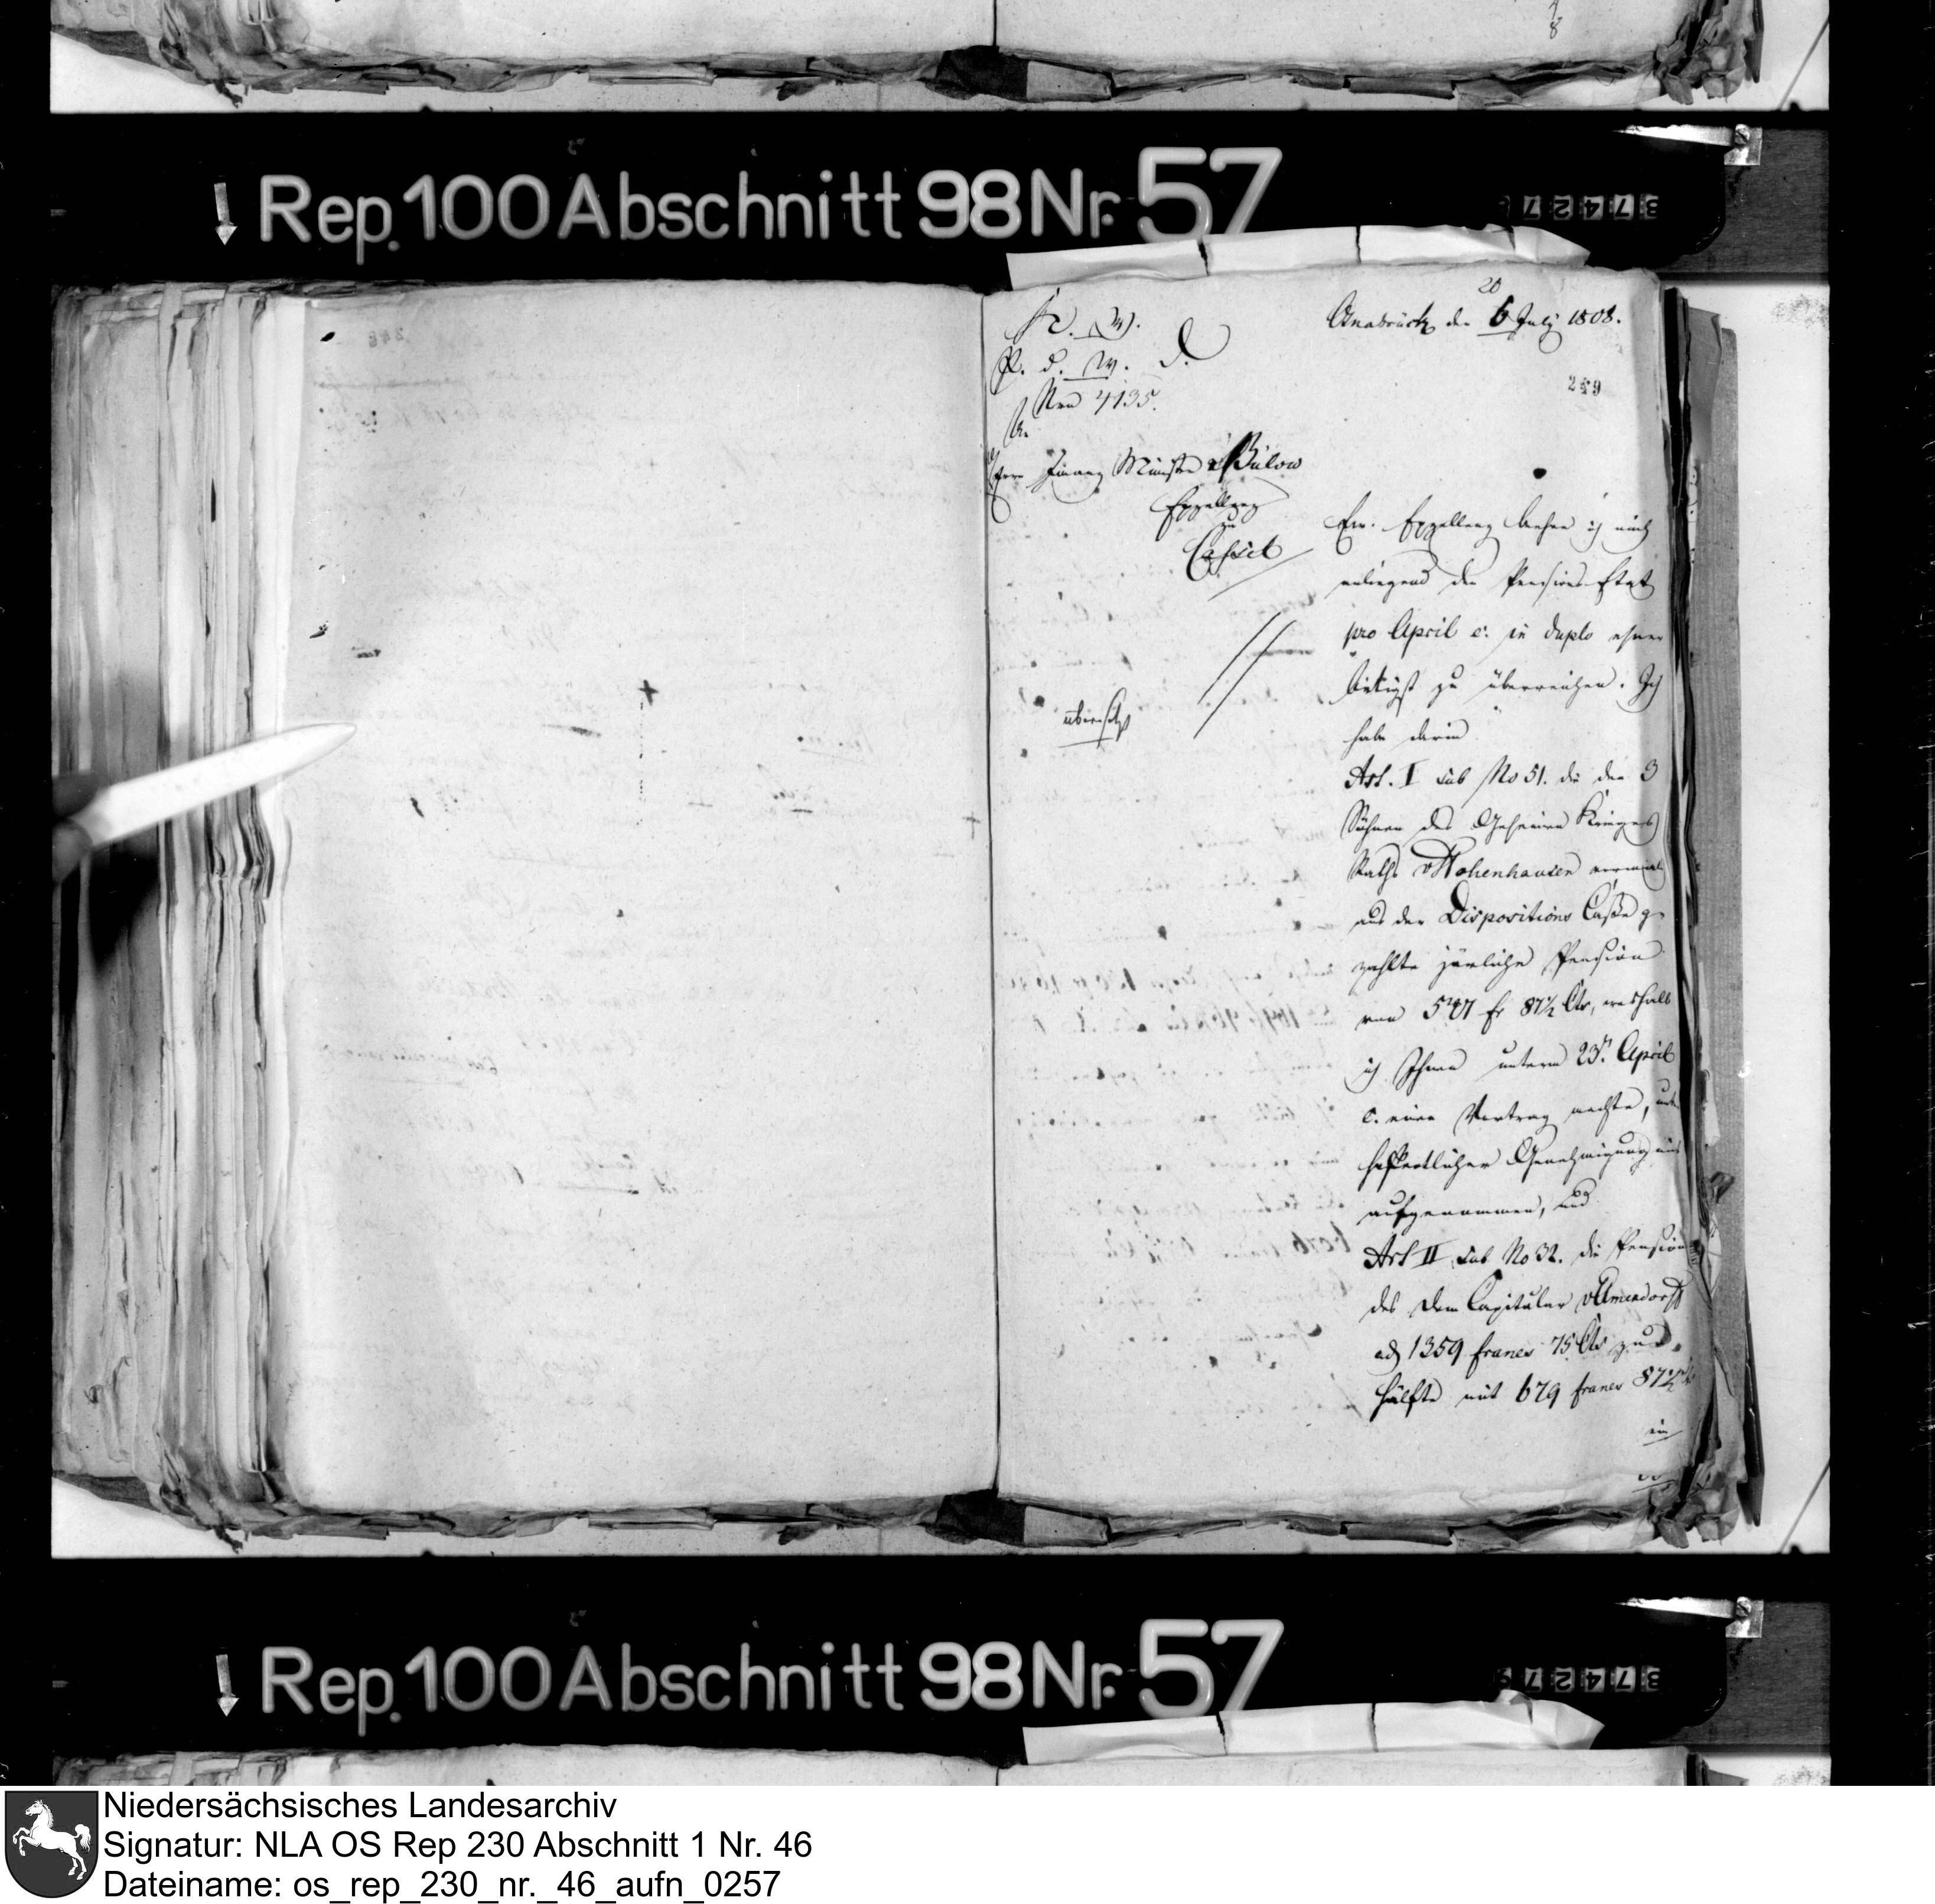 Rep. 100 Abschnitt 98 Nr. 57
K. W.
P. d. W. D.
Nro 4135.
An
Herrn Finanz Minister v Bülow
Exzellenz
zu
Cassel
übersetzt
20
Osnabrück den 6 July 1808.
249
Ew. Exzellenz beehre ich mich
anliegend den Pensions-Etat
pro April c. in duplo ehrer
bietigst zu überreichen. Ich
habe darin
Art. I sub No 51. die den 3
Söhnen des Geheimen Krieges
Raths v Hohenhausen vormals
aus der Dispositions Casse ge
zahlte järliche Pension
von 547 fr 87½ Cts, weshalb
ich Ihnen unterm 23n April
c. einen Vortrag machte, unter
hoffentlicher Genehmigung mit
aufgenommen, und
Art II sub No 32. die Pension
des Dom Capitular v Amendorff
ad 1359 francs 75 Cts zur
Hälfte mit 679 francs 87½
ein
Rep. 100 Abschnitt 98 Nr. 57
Niedersächsisches Landesarchiv
Signatur: NLA OS Rep 230 Abschnitt 1 Nr. 46
Dateiname: os_rep_230_nr._46_aufn_0257